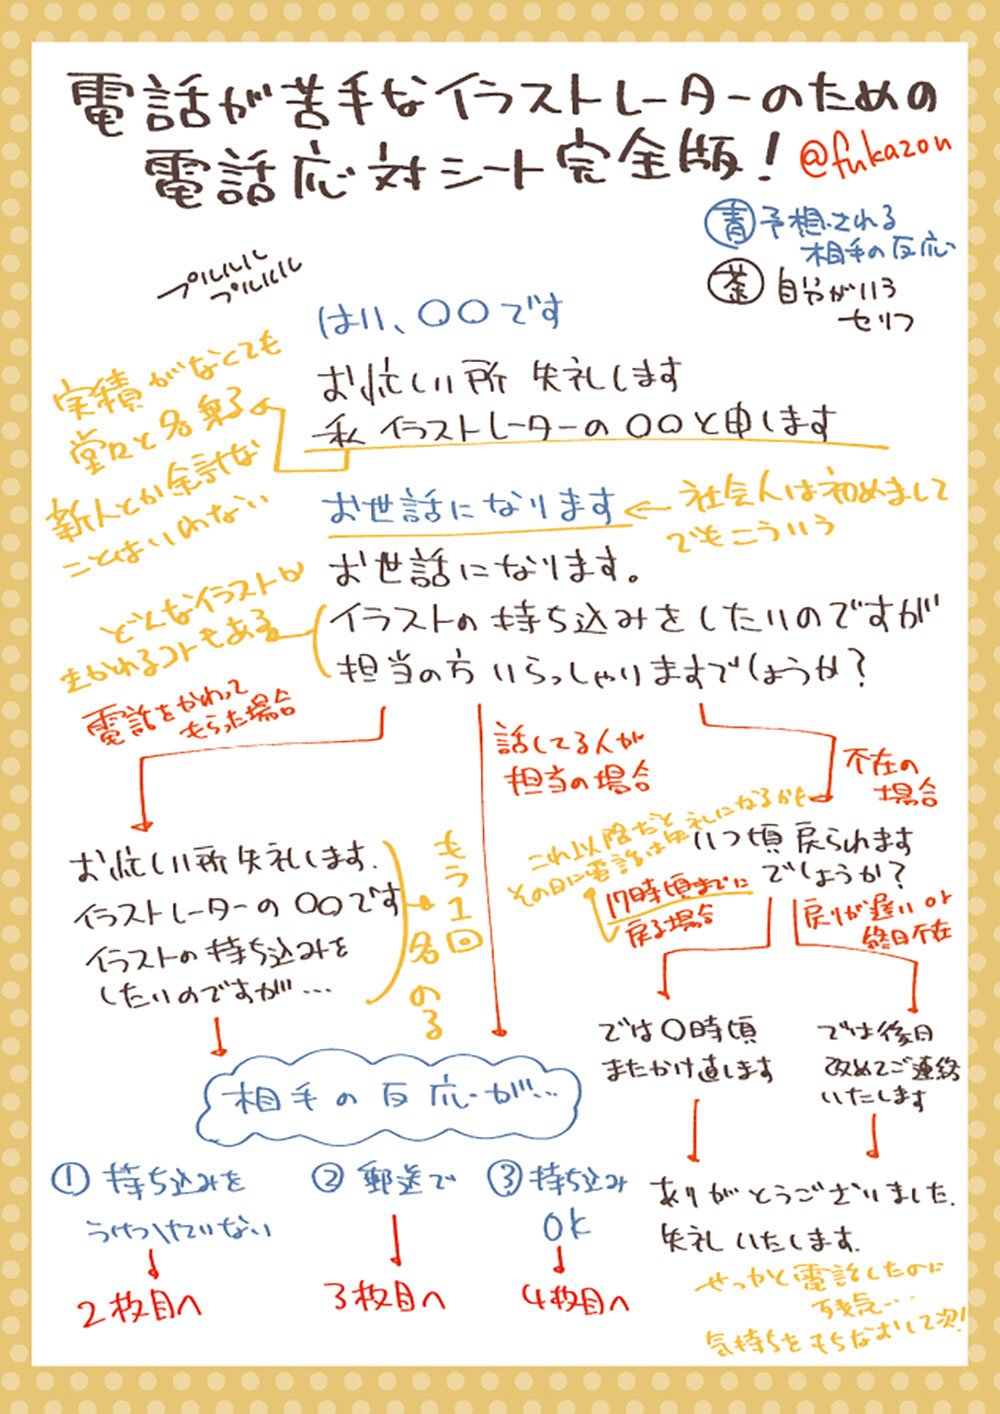 電話が苦手なイラストレーターのための
電話応対シート完全版！
@fukazon
青 予想される
相手の反応
茶 自分がいう
セリフ
プルルルル
プルルルル
はい、〇〇です
お忙しい所 失礼します
私 イラストレーターの〇〇と申します
実績がなくても
堂々と名乗る
新人とか余計な
ことはいわない
お世話になります
社会人は初めまして
でもこういう
お世話になります。
イラストの持ち込みをしたいのですが
担当の方いらっしゃいますでしょうか？
どんなイラストか
まかれるコトもある
電話をかわって
もらった場合
話してる人が
担当の場合
不在の
場合
お忙しい所失礼します。
イラストレーターの〇〇です
イラストの持ち込みを
したいのですが…
もう1回
名のる
いつ頃戻られます
でしょうか？
これ以降だと
その日に電話は失礼になるかも
17時頃までに
戻る場合
戻りが遅い or
終日不在
では〇時頃
またかけ直します
では後日
改めてご連絡
いたします
相手の反応が…
① 持ち込みを
うけつけていない
2枚目へ
② 郵送で
3枚目へ
③ 持ち込み
OK
4枚目へ
ありがとうございました。
失礼いたします。
せっかく電話したのに
残念…
気持ちをもちなおして次！